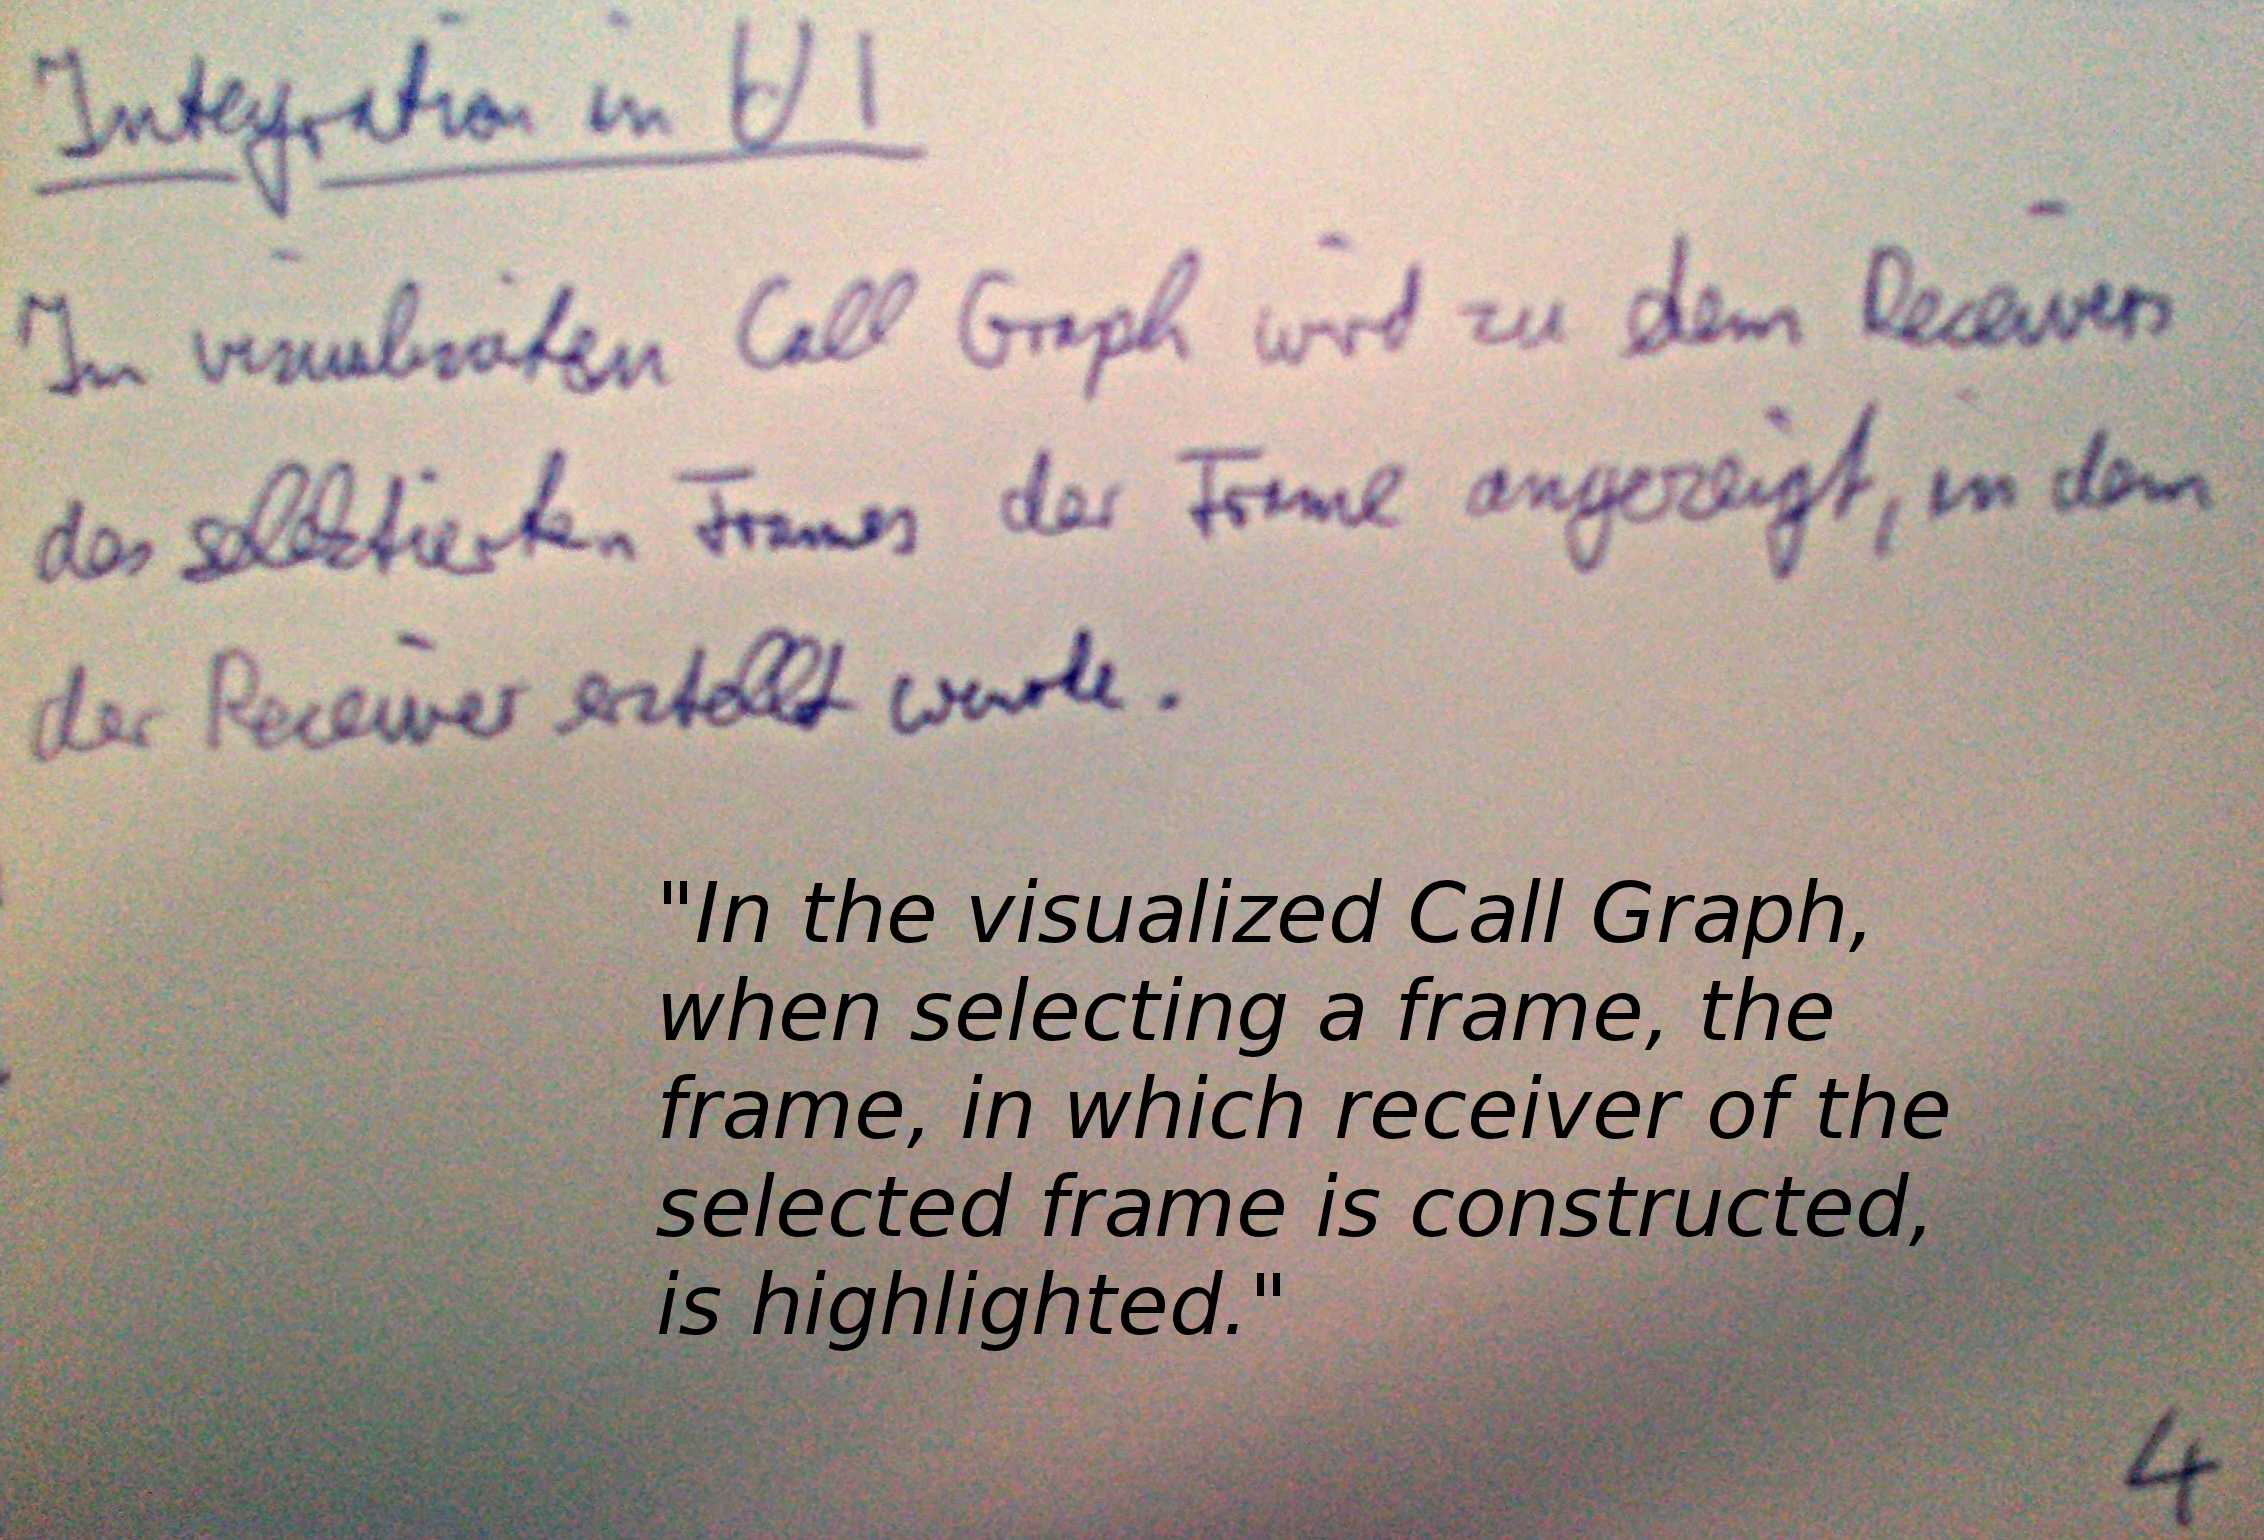 Integration in UI
Im visualisierten Call Graph wird zu dem Receivers
des selektierten Frames der Frame angezeigt, in dem
der Receiver erstellt wurde.
"In the visualized Call Graph,
when selecting a frame, the
frame, in which receiver of the
selected frame is constructed,
is highlighted."
4